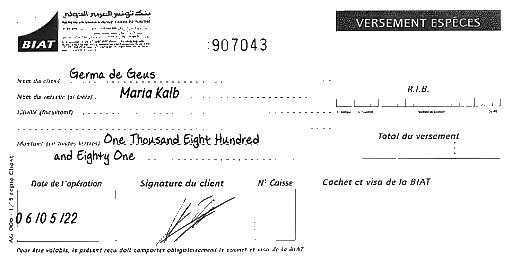 بنك تونس العربي الدولي
BIAT
VERSEMENT ESPÈCES
907043
Nom du client Germa de Geus
Nom du remettant (si tiers) Maria Kalb
R.I.B.
Libellé (facultatif)
Montant (en toutes lettres) One Thousand Eight Hundred
and Eighty One
Total du versement
Date de l'opération Signature du client N° Caisse Cachet et visa de la BIAT
06/05/22
Pour être valable, le présent reçu doit comporter obligatoirement le cachet et visa de la BIAT
copie Client